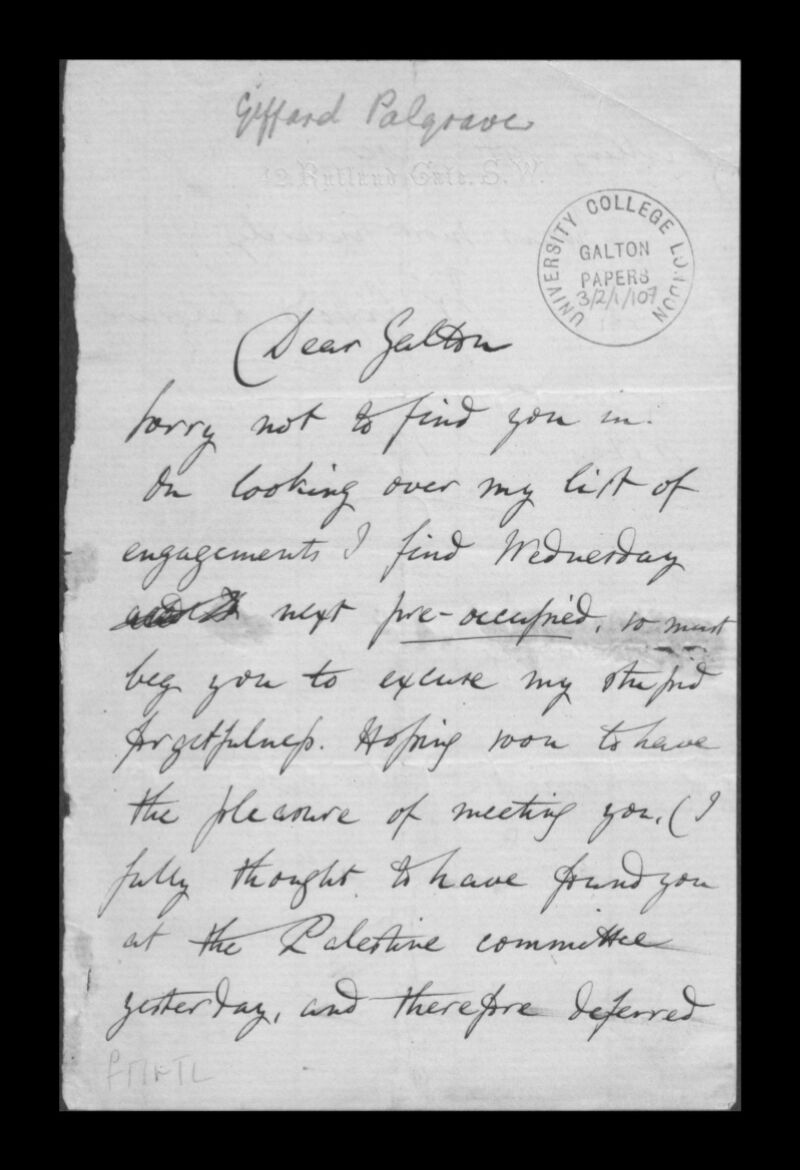 Giffard Palgrave
42 Rutland Gate. S.W.
UNIVERSITY COLLEGE LONDON
GALTON
PAPERS
3/2/1/107
Dear Galton
Sorry not to find you in.
On looking over my list of
engagements I find Wednesday
next pre-occupied, so must
beg you to excuse my stupid
forgetfulness. Hoping soon to have
the pleasure of meeting you, (I
fully thought to have found you
at the Palestine committee
yesterday, and therefore deferred